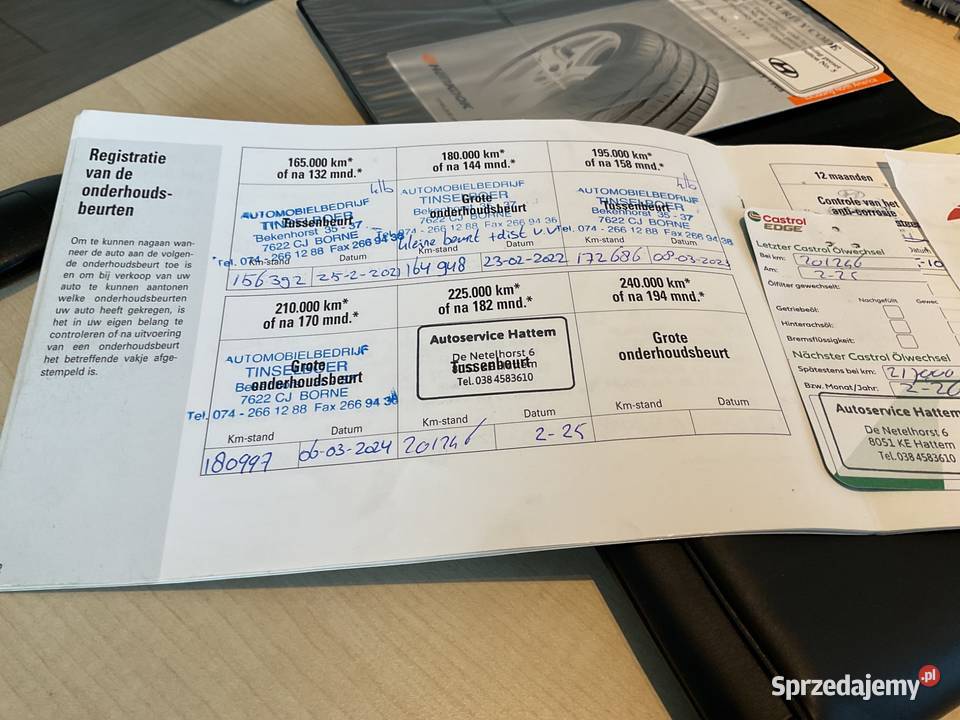 Registratie
van de
onderhouds-
beurten
Om te kunnen nagaan wan-
neer de auto aan de volgen-
de onderhoudsbeurt toe is
en om bij verkoop van uw
auto te kunnen aantonen
welke onderhoudsbeurten
uw auto heeft gekregen, is
het in uw eigen belang te
controleren of na uitvoering
van een onderhoudsbeurt
het betreffende vakje afge-
stempeld is.
165.000 km*
of na 132 mnd.*
AUTOMOBIELBEDRIJF
TINSELBOER
Tussenbeurt
Bekenhorst 35 - 37
7622 CJ BORNE
Tel. 074 - 266 12 88 Fax 266 94 36
Km-stand Datum
156392 25-2-2021
180.000 km*
of na 144 mnd.*
AUTOMOBIELBEDRIJF
Grote
onderhoudsbeurt
7622 CJ BORNE
kleine beurt + dist v.v
Km-stand Datum
164948 23-02-2022
195.000 km*
of na 158 mnd.*
AUTOMOBIELBEDRIJF
TINSELBOER
Tussenbeurt
Bekenhorst 35 - 37
7622 CJ BORNE
Tel. 074 - 266 12 88 Fax 266 94 36
Km-stand Datum
172686 08-03-202
210.000 km*
of na 170 mnd.*
AUTOMOBIELBEDRIJF
TINSELBOER
Grote
onderhoudsbeurt
7622 CJ BORNE
Tel. 074 - 266 12 88 Fax 266 94 36
Km-stand Datum
180997 06-03-2024
225.000 km*
of na 182 mnd.*
Autoservice Hattem
De Netelhorst 6
Tussenbeurt
Tel. 038 4583610
Km-stand Datum
201246 2-25
240.000 km*
of na 194 mnd.*
Grote
onderhoudsbeurt
Km-stand Datum
12 maanden
Controle van het
anti-corrosie
Castrol
EDGE
Letzter Castrol Ölwechsel
Bei km: 201246
Am: 2-25
Ölfilter gewechselt:
Nachgefüllt
Getriebeöl:
Hinterachsöl:
Bremsflüssigkeit:
Nächster Castrol Ölwechsel
Spätestens bei km: 213000
Bzw. Monat/Jahr: 2-26
Autoservice Hattem
De Netelhorst 6
8051 KE Hattem
Tel. 038 4583610
Sprzedajemy.pl